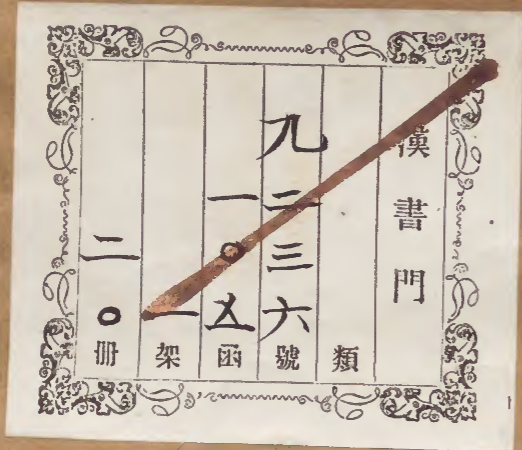 漢書門
類
九二三六號
一〇五函
一架
二〇冊